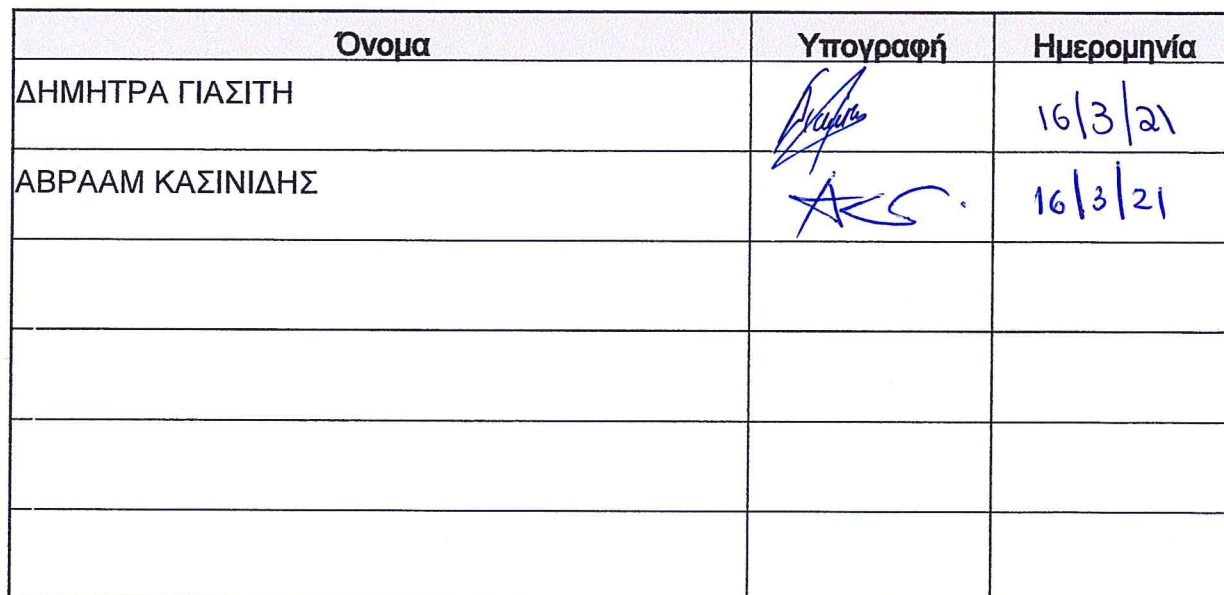 Όνομα Υπογραφή Ημερομηνία
ΔΗΜΗΤΡΑ ΓΙΑΣΙΤΗ 16/3/21
ΑΒΡΑΑΜ ΚΑΣΙΝΙΔΗΣ 16/3/21